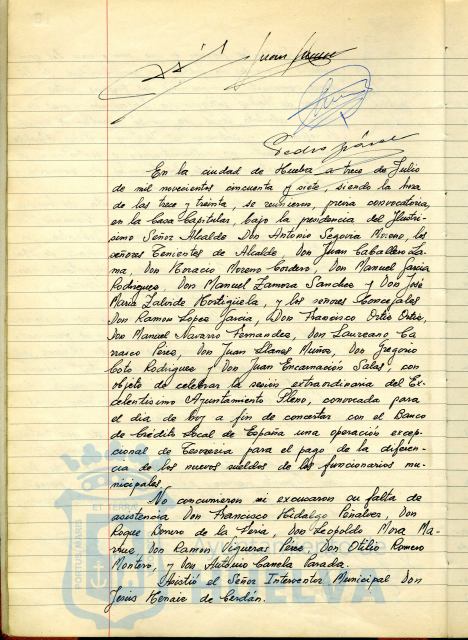 Juan
Pedro
En la ciudad de Huelva a trece de Julio
de mil novecientos cincuenta y siete, siendo la hora
de las trece y treinta, se reunieron, previa convocatoria,
en la Casa Capitular, bajo la presidencia del Ilustri-
simo Señor Alcalde Don Antonio Segovia Moreno, los
señores Tenientes de Alcalde Don Juan Caballero La-
ma, Don Horacio Moreno Cordero, Don Manuel Garcia
Rodriguez, Don Manuel Zamora Sanchez y Don José
Maria Lalinde Hortigüela, y los señores Concejales
Don Ramon Lopez Garcia, Don Francisco Ortiz Ortiz,
Don Manuel Navarro Fernandez, Don Laureano Ca-
rrasco Pérez, Don Juan Llanes Muñoz, Don Gregorio
Coto Rodriguez y Don Juan Encarnación Salas, con
objeto de celebrar la sesión extraordinaria del Ex-
celentisimo Ayuntamiento Pleno, convocada para
el dia de hoy a fin de concertar con el Banco
de Crédito Local de España una operación excep-
cional de Tesoreria para el pago de la diferen-
cia de los nuevos sueldos de los funcionarios mu-
nicipales.
No concurrieron ni excusaron su falta de
asistencia Don Francisco Hidalgo Peñalver, Don
Roque de la Don Leopoldo Mora Ma-
Don Ramon Vigueras Pérez, Don Otilio Romero
Montero, y Don Antonio Canela Parada.
Asistió el Señor Interventor Municipal Don
Jesús de Cerdán.
PORTUS MARIS
HUELVA